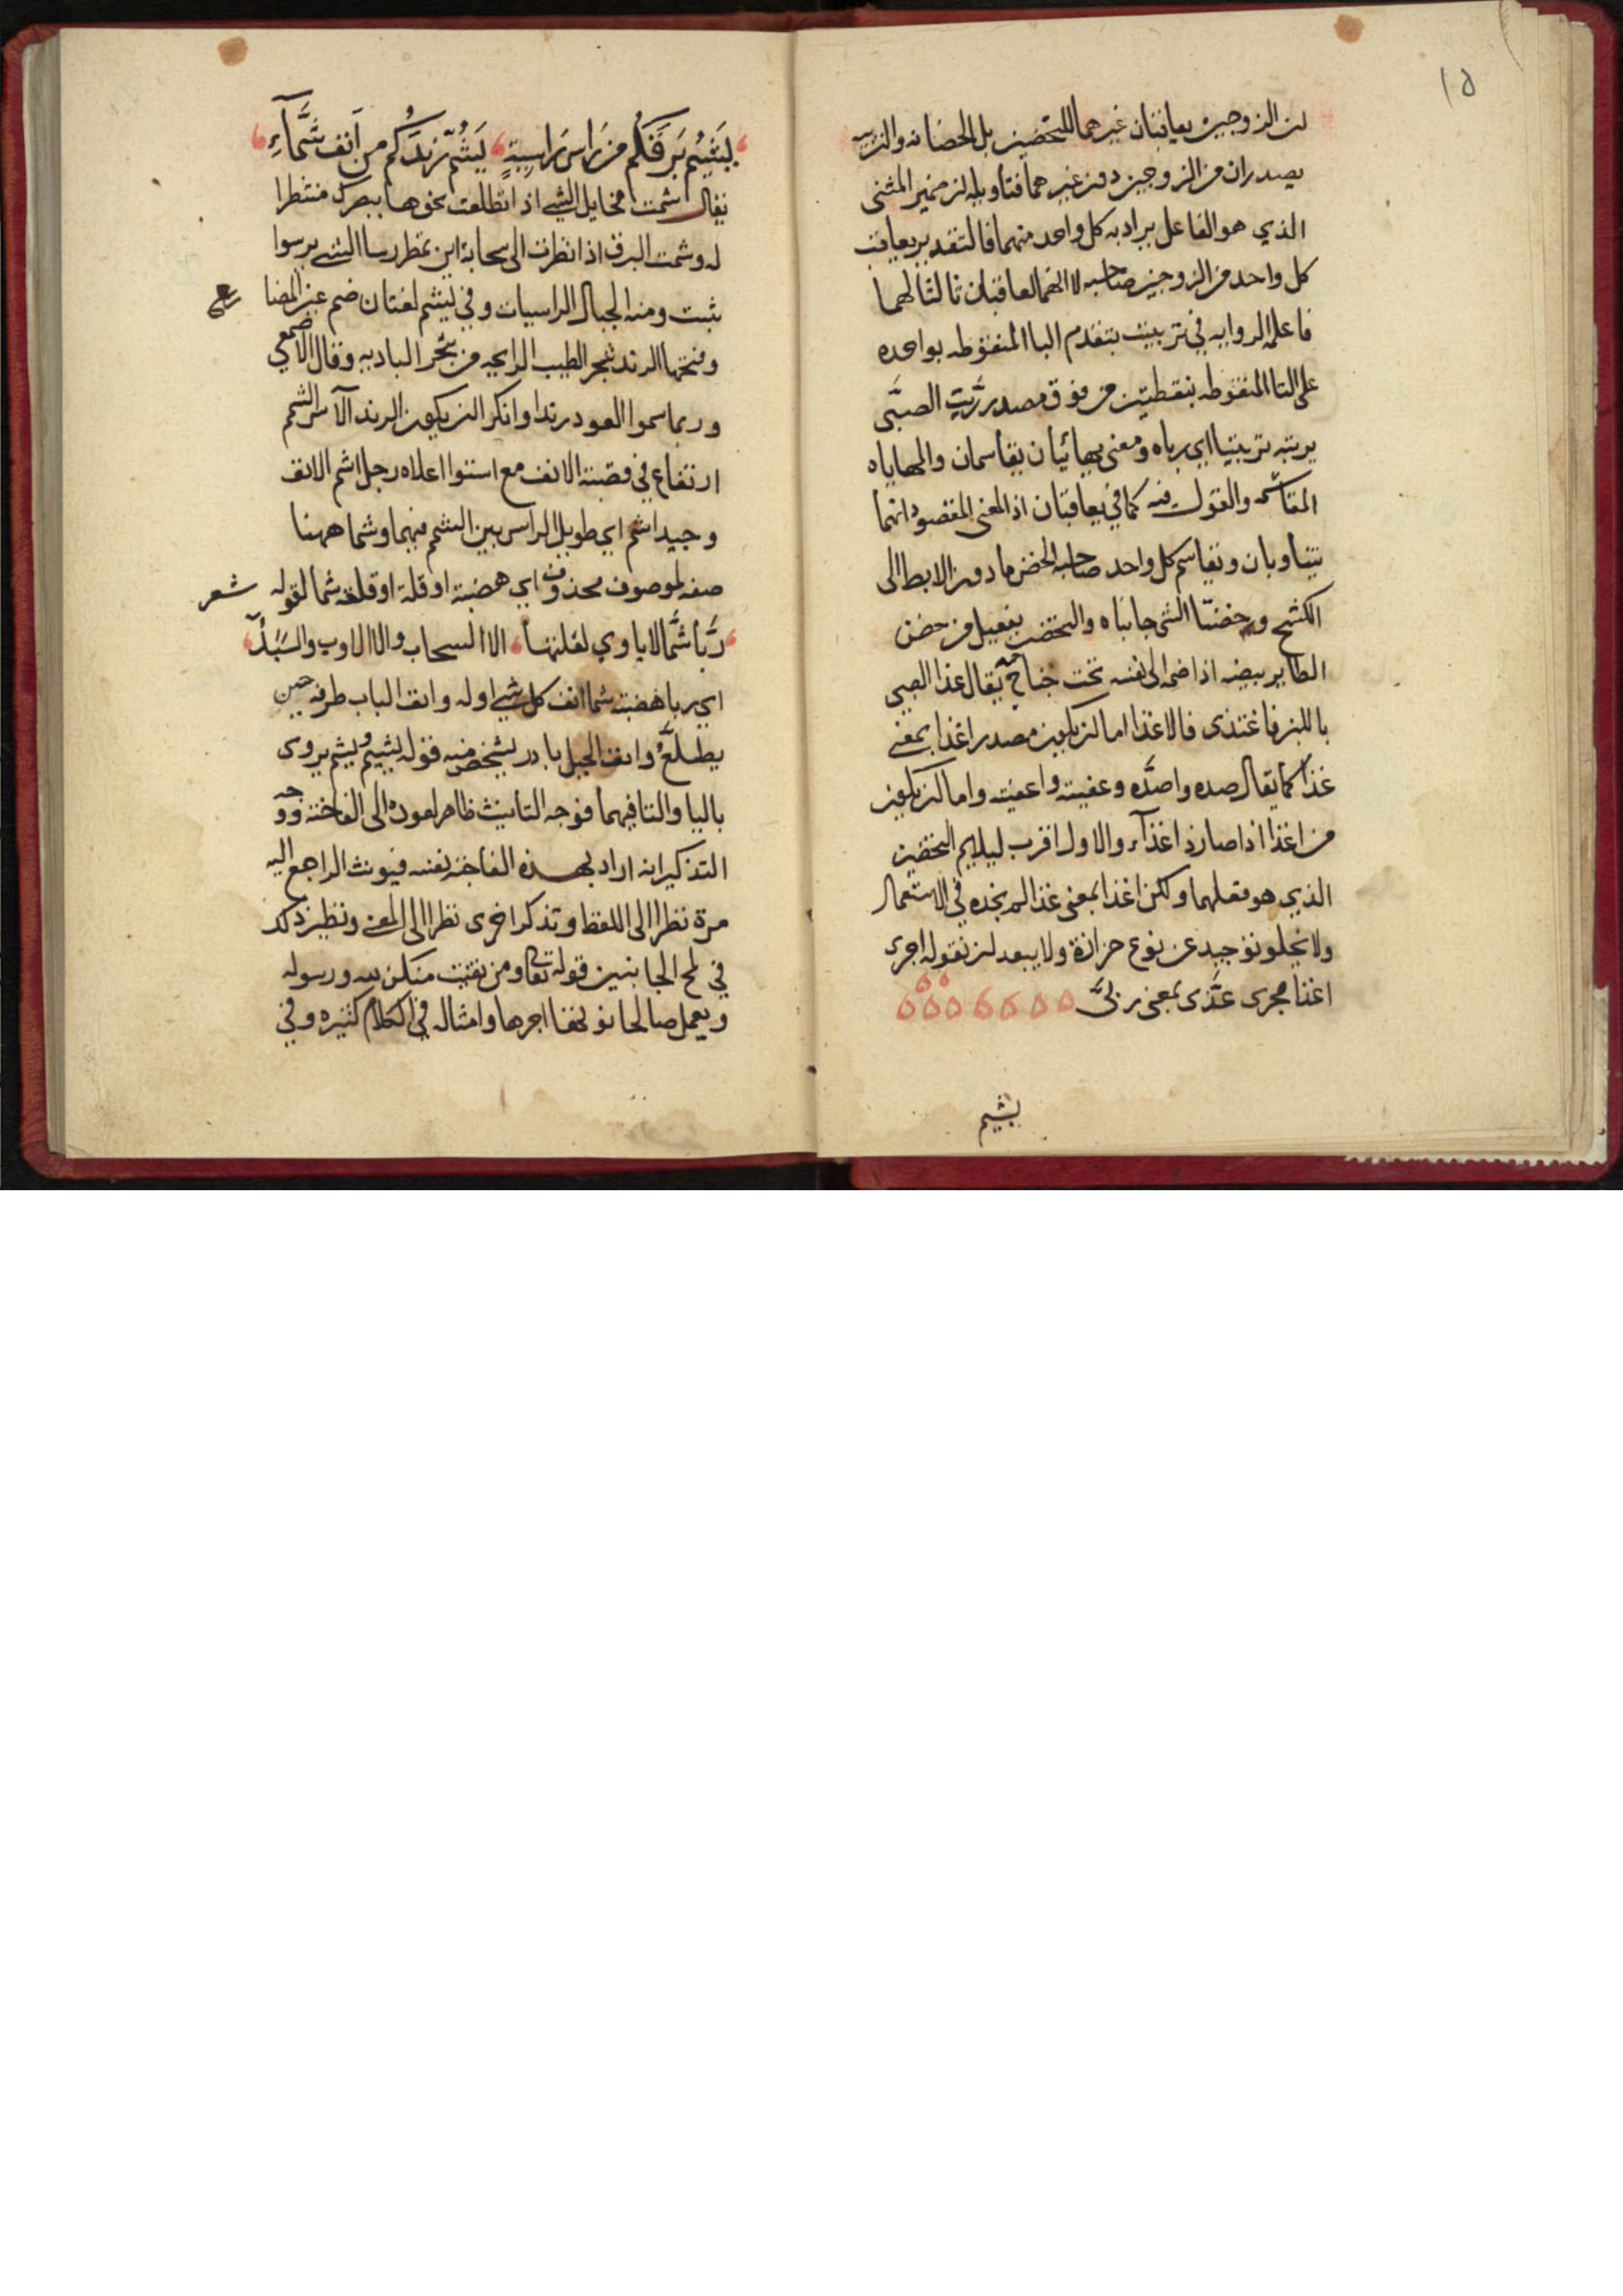 ١٥
لان الزوجين يعاقبان غيرهما للتحضين بل الحضانه والتربيه
يصدران من الزوجين دون غيرهما فتاويله ان ضمير المثنى
الذي هو الفاعل يراد به كل واحد منهما فالتقدير يعاقب
كل واحد من الزوجين صاحبه لا انهما يعاقبان ثالثا لهما
فاعلم الروايه في تربيت بتقدم البا المنقوطه بواحده
على التا المنقوطه بنقطتين من فوق مصدر ربّت الصبّى
يربته تربيتا اي رباه ومعنى يهائيان يتقاسمان والمهاياه
المقاسمه والقول فيه كما في يعاقبان اذ المعنى المقصود انهما
يتناوبان ويقاسم كل واحد صاحبه الحضن ما دون الابط الى
الكشح وحضنا الشى جانباه والتحضين تفعيل من حضن
الطاير بيضه اذا ضمه الى نفسه تحت جناحه يقال غذا الصبي
باللبن فاغتذى فالاغذا اما ان يكون مصدر اغذا بمعنى
غذا كما يقال صده واصدّه وعفيته واعفيته واما ان يكون
من اغذا اذا صار ذا غذآء والاول اقرب ليلايم التحضين
الذي هو فعلهما ولكن اغذا بمعنى غذا لم نجده في الاستعمال
ولا يخلو توجيه عن نوع حزازة ولا يبعد ان نقوله اجرى
اغذا مجرى غذّى بمعنى ربّى
يشيم
يَشِيْمُ بَرقَكُم من راس راسيةٍ يَشُمّ رَندَكُم من اَنف شَمَّآءِ
يقال شمت مخايل الشي اذا تطلعت نحوها ببصرك منتظرا
له وشمت البرق اذا نظرت الى سحابة اين تمطر رسا الشي يرسوا
ثبت ومنه الجبال الراسيات وفي يشم لغتان ضم عين المضا
رع
وفتحها الرند شجر الطيب الرايحه من شجر الباديه وقال الاصمعي
وربما سموا العود رندا وانكر ان يكون الرند الآس الشمم
ارتفاع في قصبة الانف مع استوا اعلاه رجل اشم الانف
وجيد اشم اي طويل الراس بين الشمم فيهما وشما ههنا
صفه لموصوف محذوف اي هضبة او قلة او قلعة شما لقوله شعر
ربّا شمّا لا ياوي لقلتها الا السحاب والا الاوب والسّبَلُ
اي ربا هضبة شما انف كل شي اوله وانف الباب طرفه حين
يطلع وانف الجبل نادر يشخص منه قوله يشيم ويشم يروى
باليا والتا فيهما فوجه التانيث ظاهر لعوده الى الفاخته ووجه
التذكير انه اراد بهذه الفاخته نفسه فيونث الراجع اليه
مرة نظرا الى اللفظ وتذكر اخرى نظرا الى المعنى ونظير ذلك
في لمح الجانبين قوله تعالى ومن يقنت منكن لله ورسوله
ويعمل صالحا نوتها اجرها وامثاله في الكلام كثيره وفي